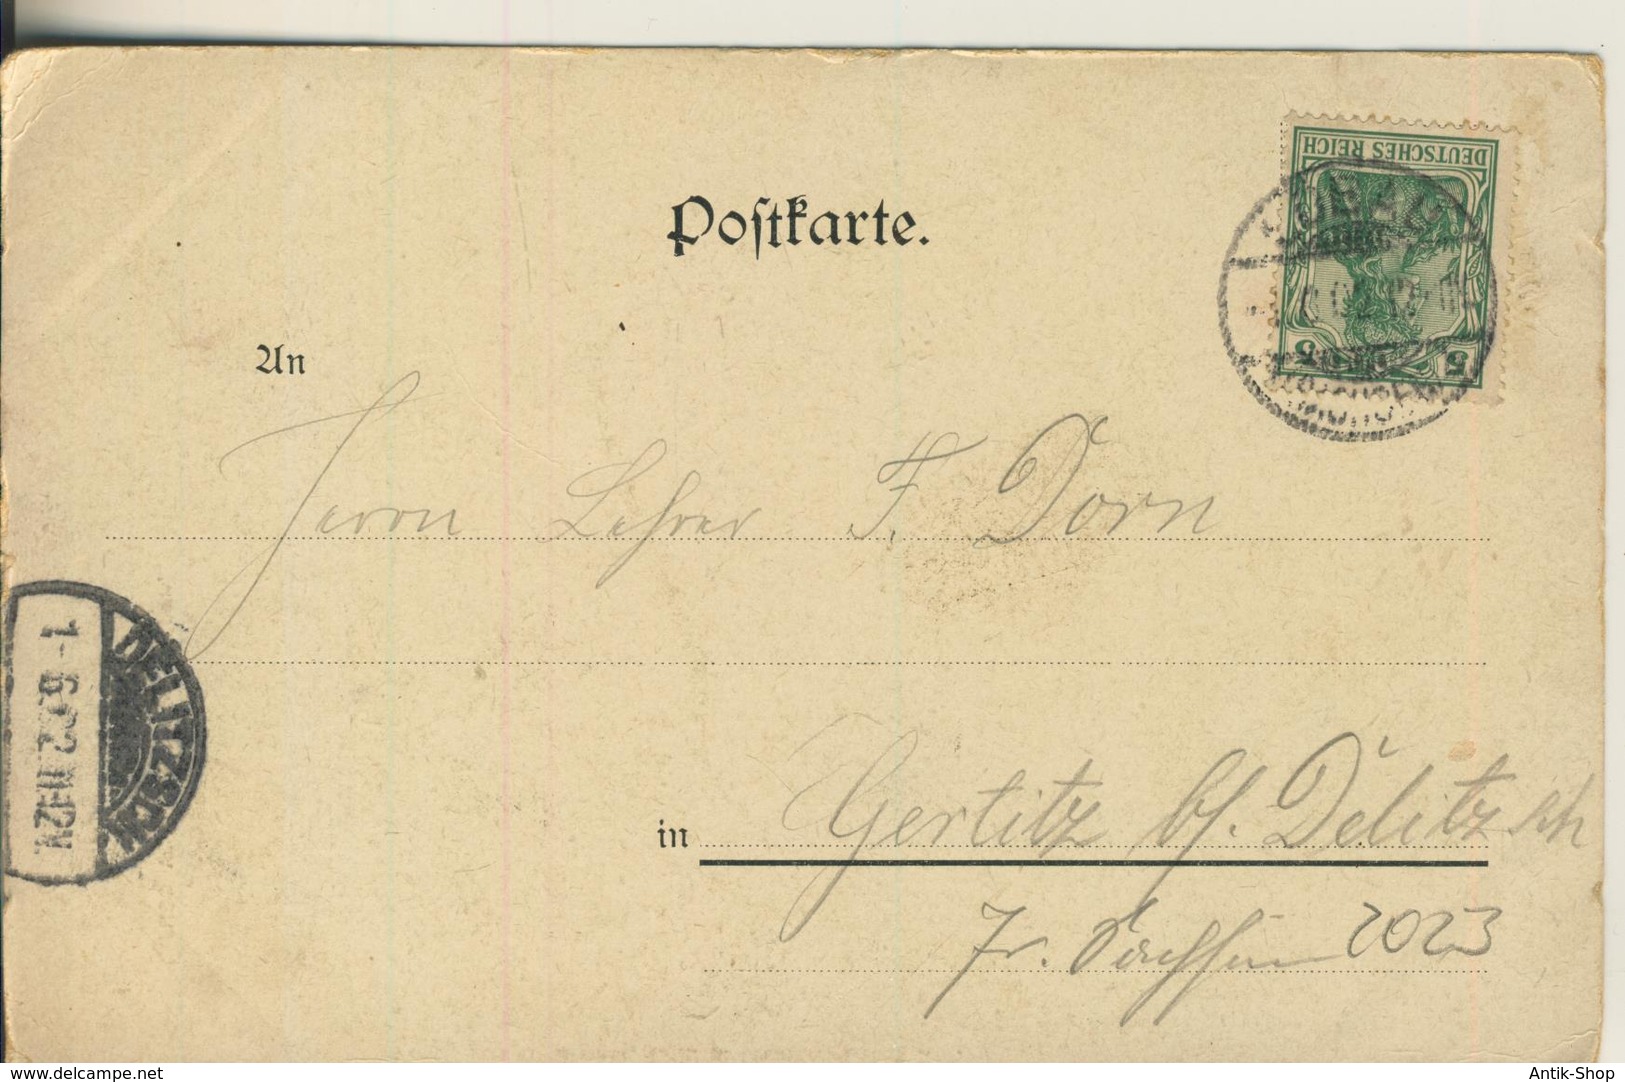 Antik-Shop
DEUTSCHES REICH
5 5
Postkarte.
An
Herrn Lehrer F. Dorn
DELITZSCH
1-6.02.11-12V.
in Gertitz b/. Delitzsch
Pr. Sachsen 2023
www.delcampe.net
Antik-Shop